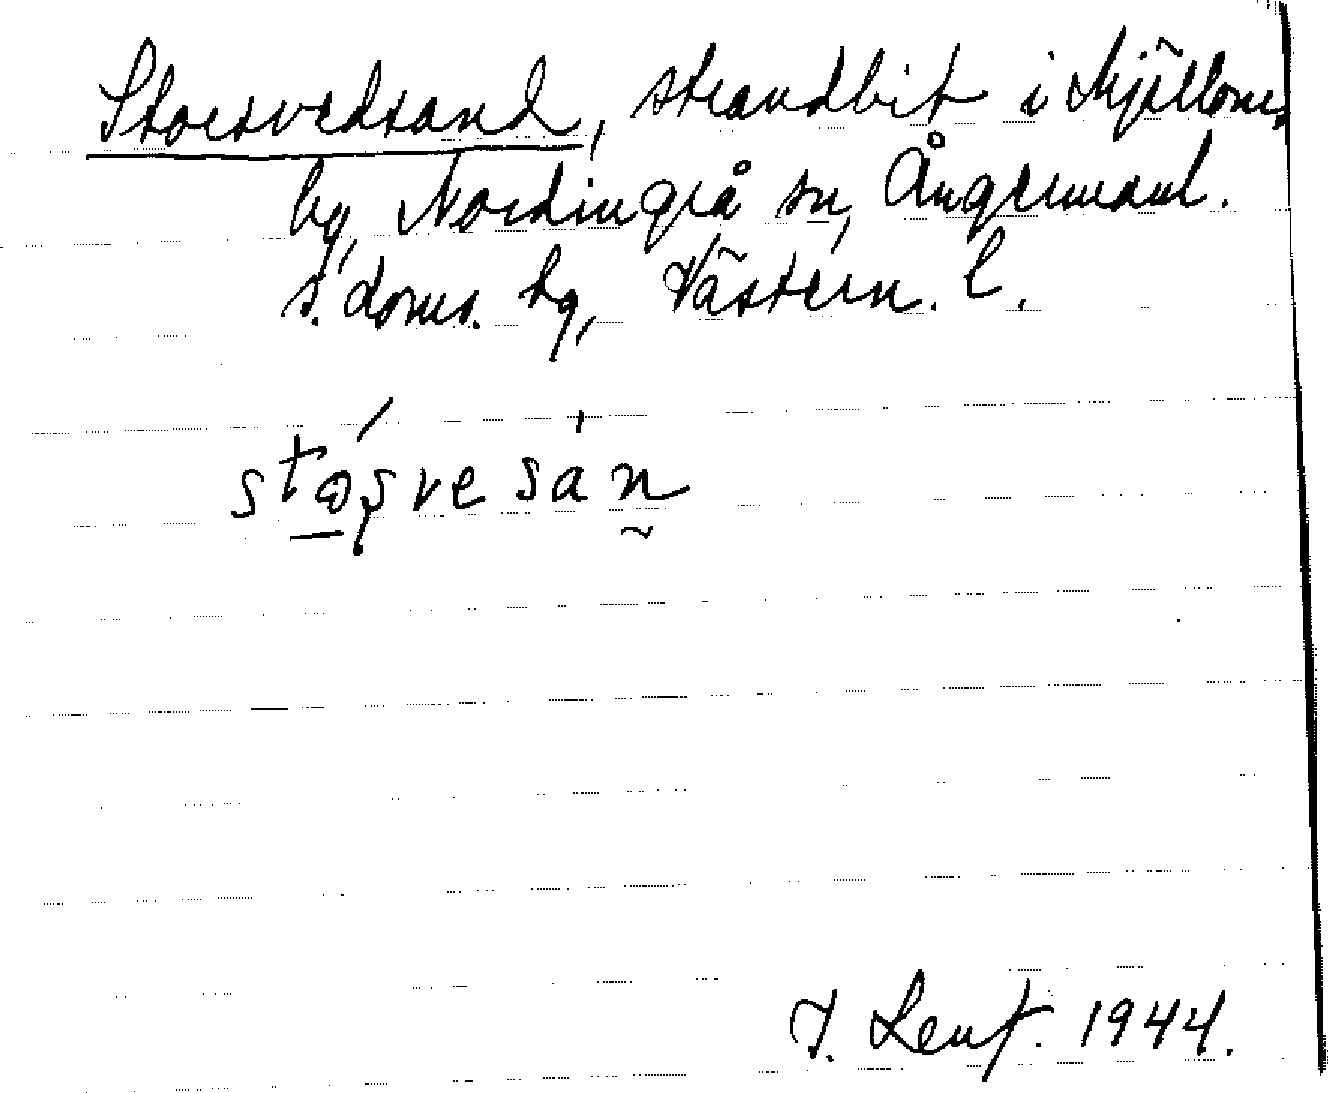 Storsvedsand, strandbit i Mjälloms
by, Nordingrå sn, Ångermanl.
s. doms. hg, Västern. l.
stɷṣve san̰
J. Lenf. 1944.